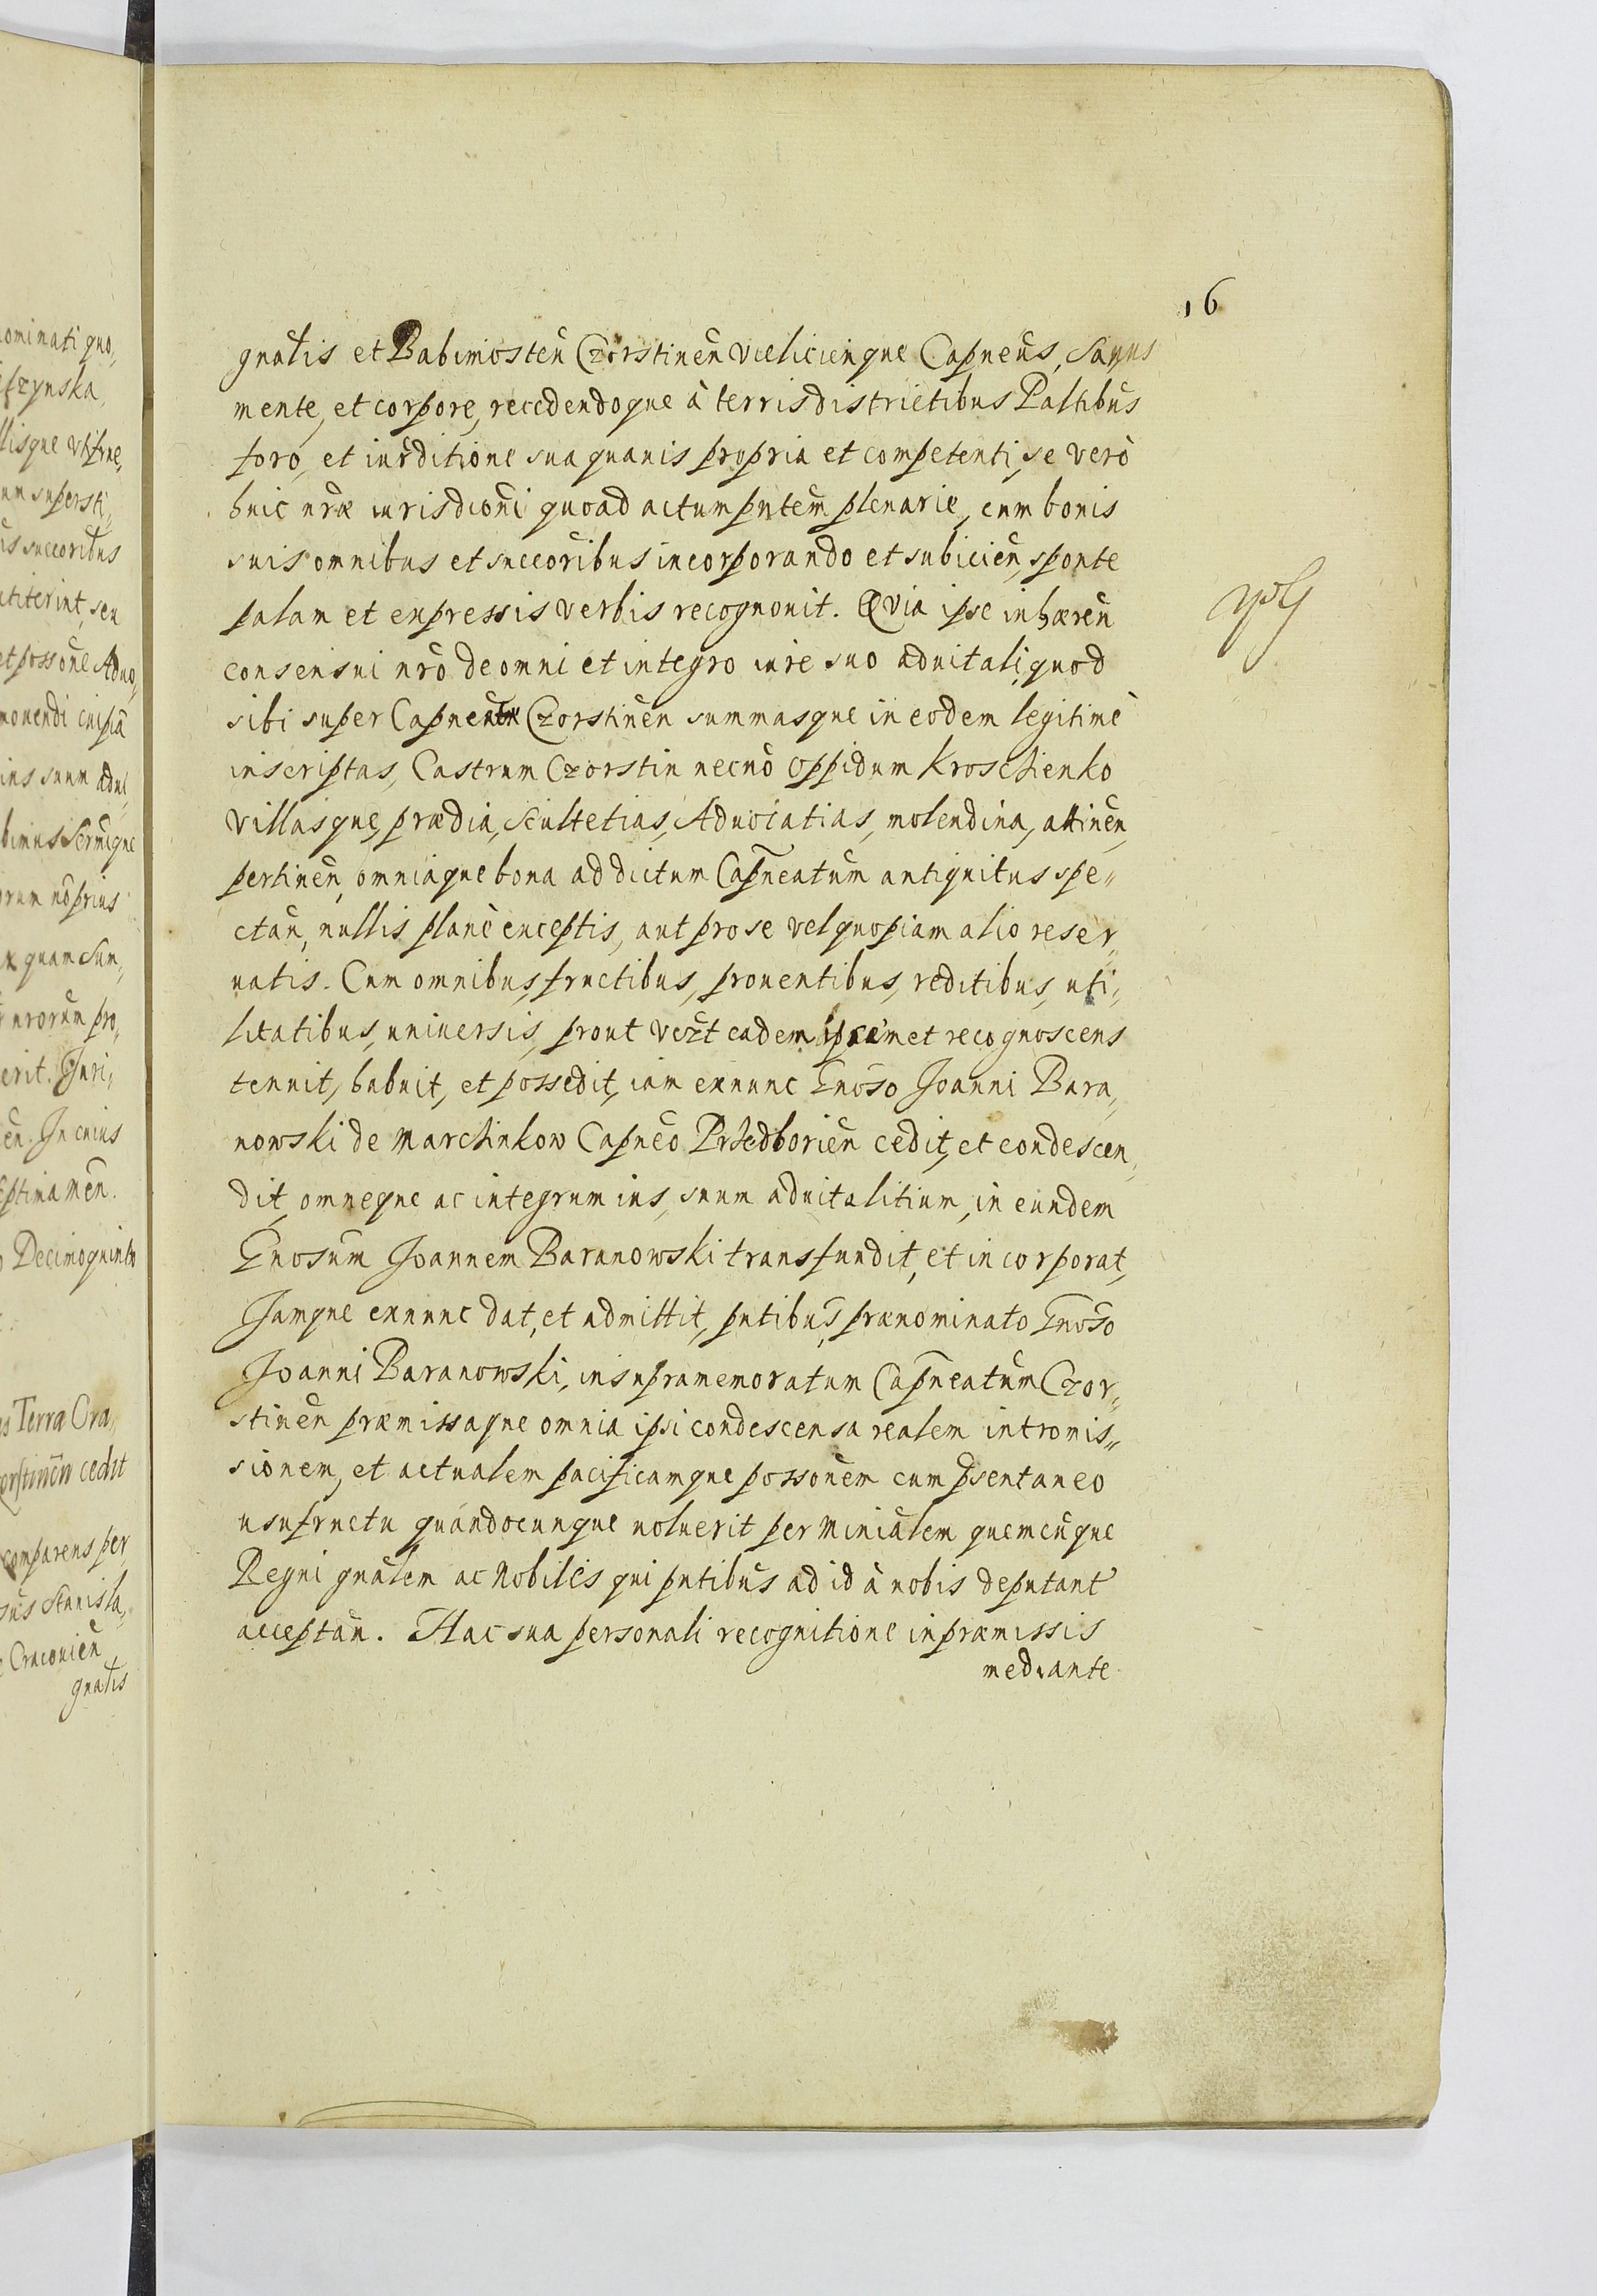 16
gnalis et Babimosten̄ Czorstinen̄ Vielicien̄que Capneus, Sanus
mente, et corpore, recedendoque à terris districtibus Paltibus
foro, et iurditione sua quauis propria et competenti, se verò
huic nræ iurisdioni quoad actum pntem plenarie, cum bonis
suis omnibus et succoribus incorporando et subicien̄, sponte
palam et expressis verbis recognouit. Quia ipse inhæren̄
consensui nrō de omni et integro iure suo aduitali, quod
sibi super Capneatu Czorstinen̄ summasque in eodem legitimè
inscriptas, Castrum Czorstin necnō Oppidum Kroschienko
Villasque, prædia, Scultetias, Aduocatias, molendina, attinen̄,
pertinen̄, omniaque bona ad dictum Capneatum antiquitus spe„
ctan̄, nullis planè exceptis, aut pro se vel quopiam alio reser„
uatis. Cum omnibus, fructibus, prouentibus, reditibus, uti„
litatibus, uniuersis, prout vczt eadem ipsemet recognoscens
tenuit, habuit, et possedit, iam exnunc Gnoso Joanni Bara„
nowski de Marchinkow Capneo Przedborien̄ cedit, et condescen„
dit, omneque ac integrum ius, suum aduitalitium, in eundem
Gnosum Joannem Baranowski transfundit, et incorporat,
Jamque exnunc dat, et admittit, pntibus, prænominato Gnoso
Joanni Baranowski, in supramemoratum Capneatum Czor„
stinen̄ præmissaque omnia ipsi condescensa realem intromis„
sionem, et actualem pacificamque possonem cum psentaneo
usufructu quandocunque voluerit per Minialem quemcunque
Regni gnalem ac Nobiles qui pntibus ad id à nobis deputant
acceptan̄. Hac sua personali recognitione in præmissis
mediante